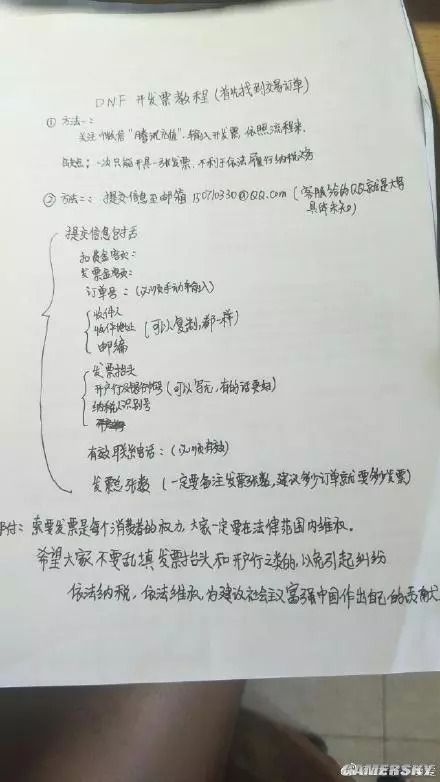 DNF 开发票教程（首先找到交易订单）
① 方法一：
关注微信“腾讯充值”，输入开发票，依照流程来，
缺点：一次只能开具一张发票，不利于依法履行纳税义务
② 方法二：提交信息至邮箱 @QQ.com（客服给的QQ就是大写
具体未知）
提交信息包括
扣费金额：
发票金额：
订单号：（必须手动单输入）
收件人
收件地址（可以复制，都一样）
邮编
发票抬头
开户行及银行帐号（可以写无，有的话要如）
纳税人识别号
有效联系电话：（必须有效）
发票总张数（一定要备注发票张数，建议多少订单就要多少发票）
附：索要发票是每个消费者的权力，大家一定要在法律范围内维权。
希望大家不要乱填发票抬头和开户行之类的，以免引起纠纷
依法纳税，依法维权，为建设社会主义富强中国作出自己的贡献
GAMERSKY